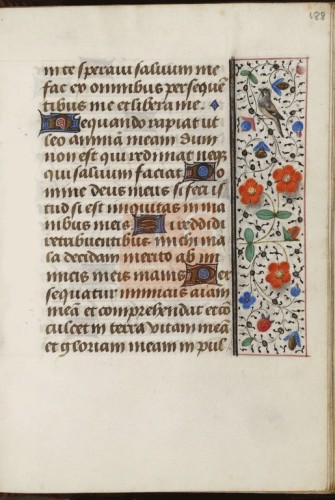 188
in te speraui saluum me
fac ex omnibus persequē
tibus me et libera me.
Nequando rapiat ut
leo animā meam dum
non est qui redimat neq
qui saluum faciat Do
mine deus meus si feci is
tud si est iniquitas in ma
nibus meis Si reddidi
retribuentibus michi ma
la decidam merito ab in
imicis meis inanis Per
sequatur inimicus aiam
meā et comprehendat et cō
culcet in terra vitam meā
et gloriam meam in pul